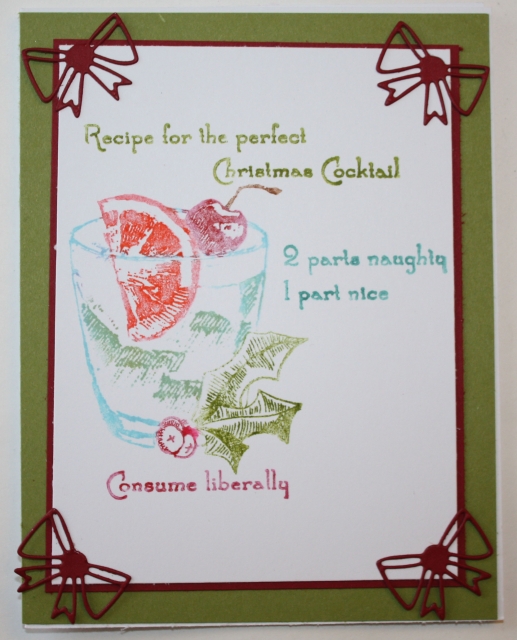 Recipe for the perfect
Christmas Cocktail
2 parts naughty
1 part nice
Consume liberally